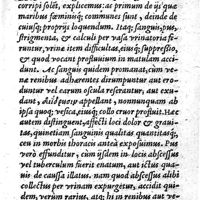 corripi solēt, explicemus: ac primum de ijs quæ
maribus fœminisq́; communes sunt, deinde de
cuiusq́; proprijs loquendum. Itaq; sanguis, pus,
strigmenta, & calculi per vasa vrinatoria fe-
runtur, vrinæ item difficultas, eiusq́; suppressio,
& quod vocant profluuium in matulam accidunt.
Ac sanguis quidem promanat, cum ve-
næ renibus adhærentes dirumpuntur aut ero-
duntur vel earum oscula referantur, aut exu-
dant, appellant, nonnunquam ab
ipsa quoq; vesica, eiusq́; collo cruor profluit. Hæc
autem distinguent, affecti loci dolor & graui-
tas, quinetiam sanguinis qualitas quantitasq́;,
ceu in morbis thoracis antea exposuimus. Pus
verò effunditur, cum ijsdem in locis abscessus
vel tuberculum fuerit enatum, aut ictus quæ-
uis de caussa illatus. nam quod abscessus alibi
collectus per vrinam expurgetur, accidit qui-
dem, verum rarius, atq; hi in renibus aut ve-